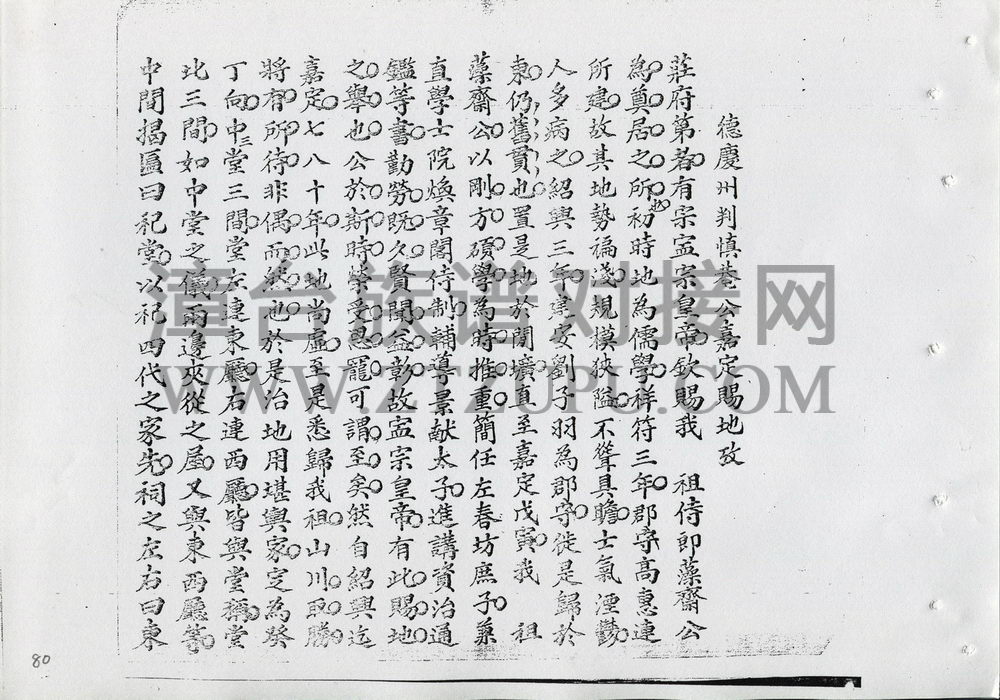 德慶州判慎菴公嘉定賜地攷
莊府第者有宋寍宗皇帝欽賜我 祖侍郎藻齋公
為奠居之所也初時地為儒學祥符三年郡守高惠連
所建故其地勢褊淺規模狹隘不聳具瞻士氣湮鬱
人多病之紹興三年建安劉子羽為郡守徙是歸於
東仍舊貫也置是地於閒壙直至嘉定戊寅我 祖
藻齋公以剛方碩學為時推重簡任左春坊庶子兼
直學士院煥章閣侍制輔導景献太子進講資治通
鑑等書勸勞既久賢聞益彰故寍宗皇帝有此賜地
之舉也公於斯時榮受恩寵可謂至矣然自紹興迄
嘉定七八十年此地尚虛至是悉歸我祖山川取勝
將有所待非偶而然也於是治地用堪輿家定為癸
丁向中三堂三間堂左連東廳右連西廳皆與堂稱堂
北三間如中堂之儀兩邊夾從之屋又與東西廳等
中間揭匾曰祀堂以祀四代之家先祠之左右曰東
漳台族谱对接网
WWW.ZTZUPU.COM
80